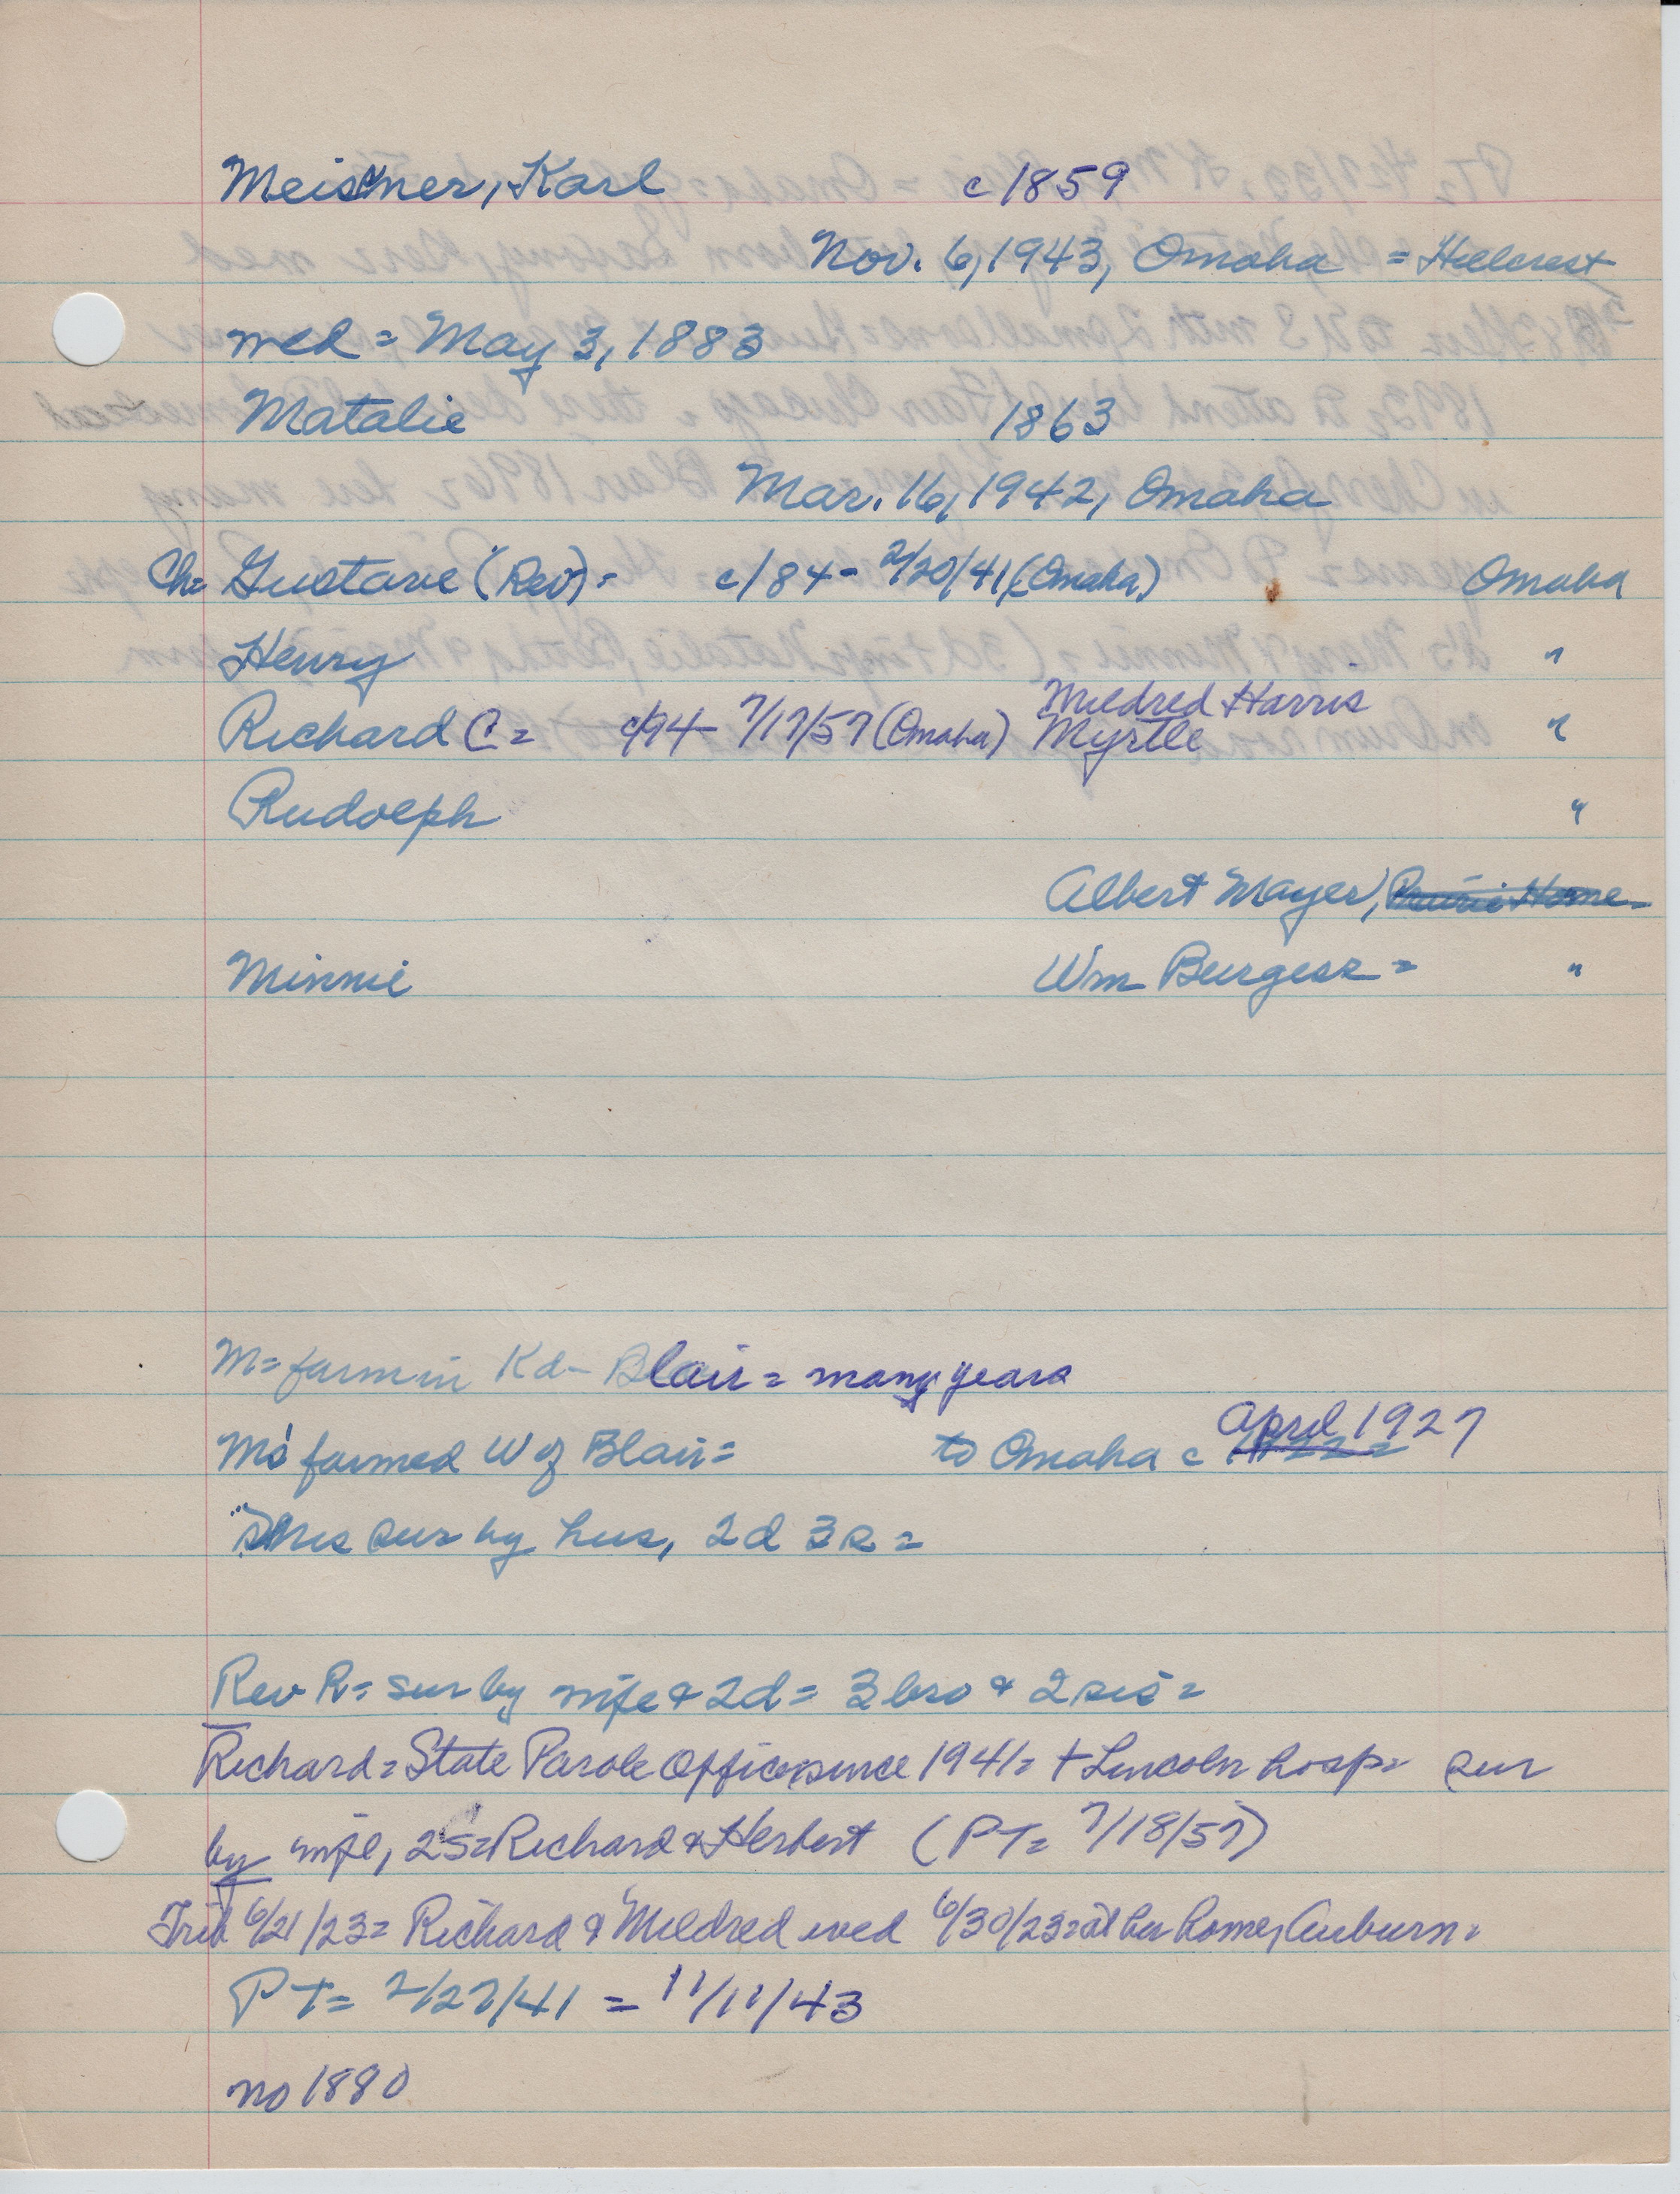 Meisner, Karl c 1859
Nov. 6, 1943, Omaha = Hillcrest
wed = May 3, 1883
Natalie 1863
Mar. 16, 1942, Omaha
Ch= Gustave (Rev) = c/84 - 2/20/41 (Omaha) Omaha
Henry "
Mildred Harris
Richard C = c/94 - 7/17/57 (Omaha) Myrtle "
Rudolph "
Albert Mayer, Prairie Home -
Minnie Wm Burgess = "
M= farm in Kd - Blair = many years
April 1927
M's farmed W of Blair = to Omaha c
Mrs sur by hus, 2d 3s =
Rev R= sur by wife & 2d = 3 bro & 2 sis =
Richard = State Parole Officer since 1941 = + Lincoln hosp = sur
by wife, 2s = Richard & Herbert (PT= 7/18/57)
Trib 6/21/23 = Richard & Mildred wed 6/30/23 = at her home, Auburn =
PT= 2/27/41 = 11/11/43
no 1880